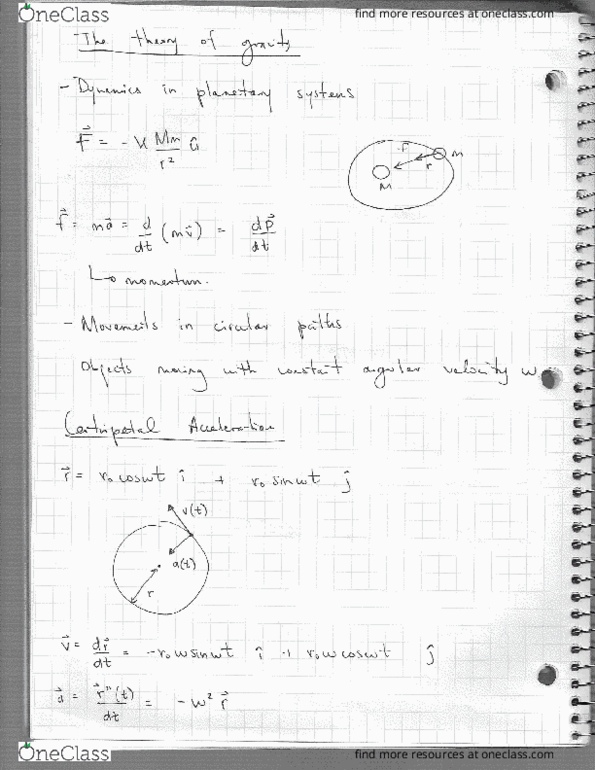 OneClass
find more resources at oneclass.com
The theory of gravity
- Dynamics in planetary systems
F⃗ = - K Mm/r² û
-F
m
r
M
f⃗ = ma⃗ = d/dt (mv⃗) = dp⃗/dt
↳ momentum.
- Movements in circular paths
Objects moving with constant angular velocity w
Centripetal Acceleration
r⃗ = r₀ coswt î + r₀ sinwt ĵ
v(t)
a(t)
r
v⃗ = dr⃗/dt = -r₀ w sinwt î + r₀ w coswt ĵ
a⃗ = r⃗"(t)/dt = - w² r⃗
OneClass
find more resources at oneclass.com